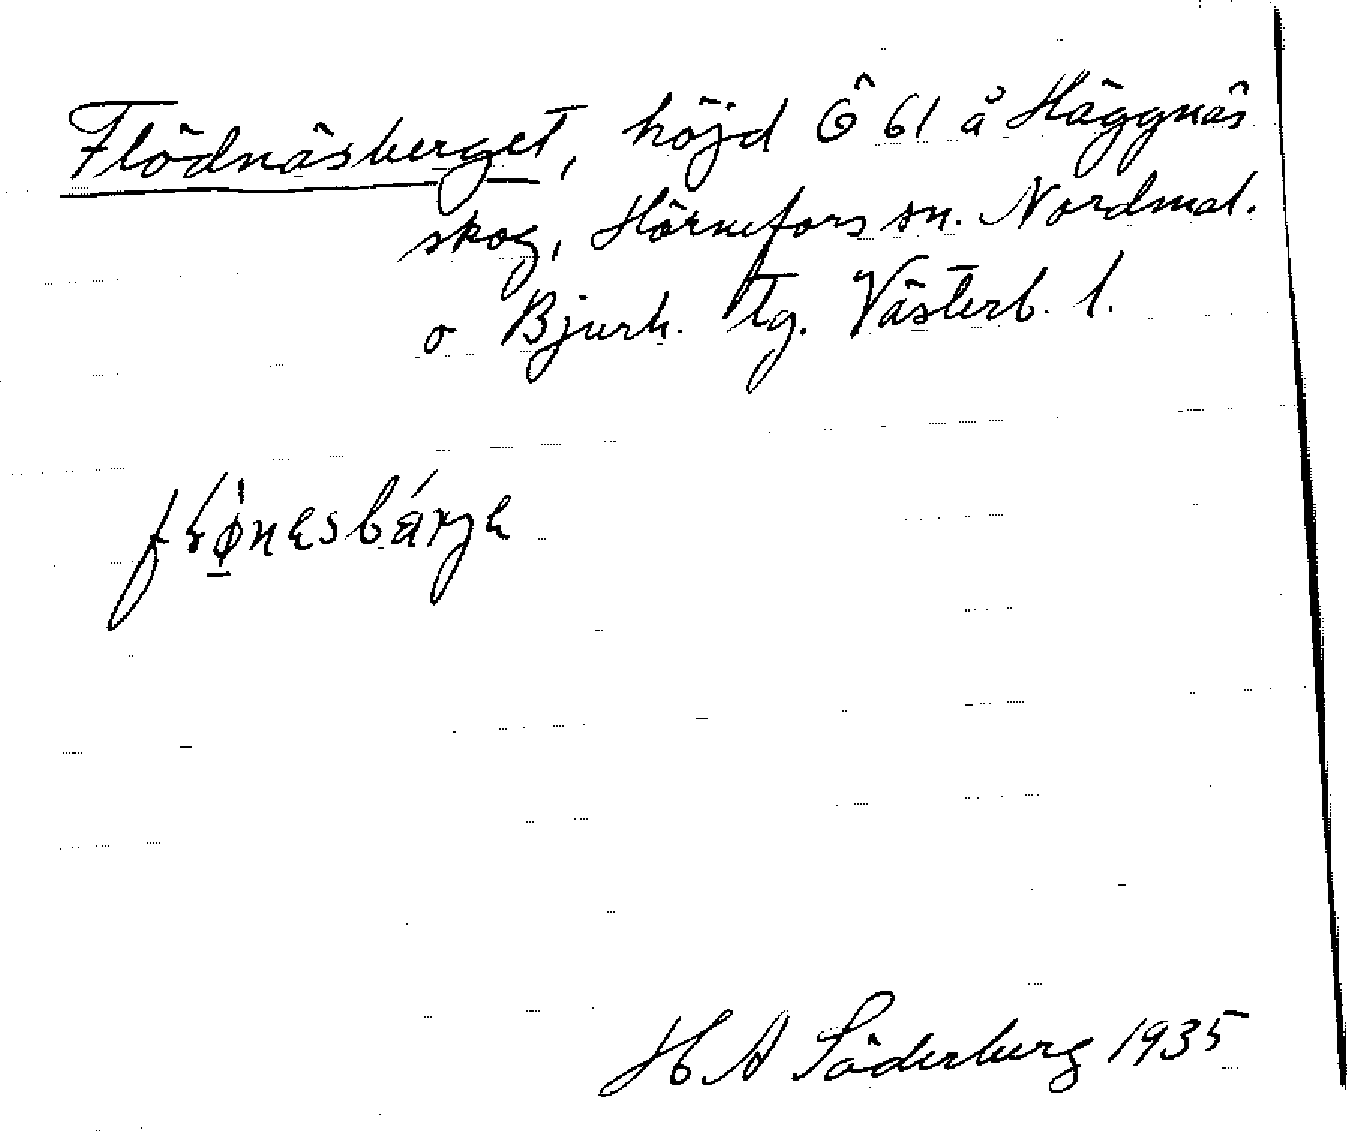 Flödnäsberget, höjd Ö 61 å Häggnäs
skog, Hörnefors sn. Nordmal.
o Bjurh. tg. Västerb. l.
H A Söderberg 1935